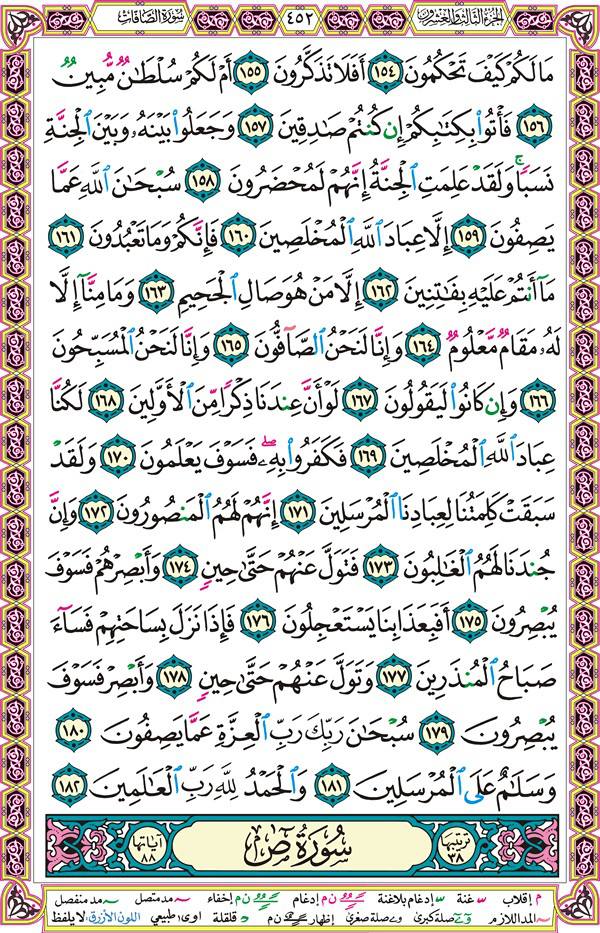 سُورَةُ الصَّافَّات
٤٥٢
الجُزءُ الثَّالِثُ وَالعِشرُونَ
مَا لَكُمْ كَيْفَ تَحْكُمُونَ ١٥٤ أَفَلَا تَذَكَّرُونَ ١٥٥ أَمْ لَكُمْ سُلْطَانٌ مُّبِينٌ
١٥٦ فَأْتُوا بِكِتَابِكُمْ إِن كُنتُمْ صَادِقِينَ ١٥٧ وَجَعَلُوا بَيْنَهُ وَبَيْنَ الْجِنَّةِ
نَسَبًا ۚ وَلَقَدْ عَلِمَتِ الْجِنَّةُ إِنَّهُمْ لَمُحْضَرُونَ ١٥٨ سُبْحَانَ اللَّهِ عَمَّا
يَصِفُونَ ١٥٩ إِلَّا عِبَادَ اللَّهِ الْمُخْلَصِينَ ١٦٠ فَإِنَّكُمْ وَمَا تَعْبُدُونَ ١٦١
مَا أَنتُمْ عَلَيْهِ بِفَاتِنِينَ ١٦٢ إِلَّا مَنْ هُوَ صَالِ الْجَحِيمِ ١٦٣ وَمَا مِنَّا إِلَّا
لَهُ مَقَامٌ مَّعْلُومٌ ١٦٤ وَإِنَّا لَنَحْنُ الصَّافُّونَ ١٦٥ وَإِنَّا لَنَحْنُ الْمُسَبِّحُونَ
١٦٦ وَإِن كَانُوا لَيَقُولُونَ ١٦٧ لَوْ أَنَّ عِندَنَا ذِكْرًا مِّنَ الْأَوَّلِينَ ١٦٨ لَكُنَّا
عِبَادَ اللَّهِ الْمُخْلَصِينَ ١٦٩ فَكَفَرُوا بِهِ ۖ فَسَوْفَ يَعْلَمُونَ ١٧٠ وَلَقَدْ
سَبَقَتْ كَلِمَتُنَا لِعِبَادِنَا الْمُرْسَلِينَ ١٧١ إِنَّهُمْ لَهُمُ الْمَنصُورُونَ ١٧٢ وَإِنَّ
جُندَنَا لَهُمُ الْغَالِبُونَ ١٧٣ فَتَوَلَّ عَنْهُمْ حَتَّى حِينٍ ١٧٤ وَأَبْصِرْهُمْ فَسَوْفَ
يُبْصِرُونَ ١٧٥ أَفَبِعَذَابِنَا يَسْتَعْجِلُونَ ١٧٦ فَإِذَا نَزَلَ بِسَاحَتِهِمْ فَسَاءَ
صَبَاحُ الْمُنذَرِينَ ١٧٧ وَتَوَلَّ عَنْهُمْ حَتَّى حِينٍ ١٧٨ وَأَبْصِرْ فَسَوْفَ
يُبْصِرُونَ ١٧٩ سُبْحَانَ رَبِّكَ رَبِّ الْعِزَّةِ عَمَّا يَصِفُونَ ١٨٠
وَسَلَامٌ عَلَى الْمُرْسَلِينَ ١٨١ وَالْحَمْدُ لِلَّهِ رَبِّ الْعَالَمِينَ ١٨٢
ترتيبها ٣٨ سُورَةُ ص آياتها ٨٨
م إقلاب س غنة س إدغام بلاغنة ن م إدغام ن م إخفاء ~ مد متصل ~ مد منفصل
~ المد اللازم صلة كبرى صلة صغرى إظهار ن م قلقلة اوى: طبيعي اللون الأزرق: لا يلفظ